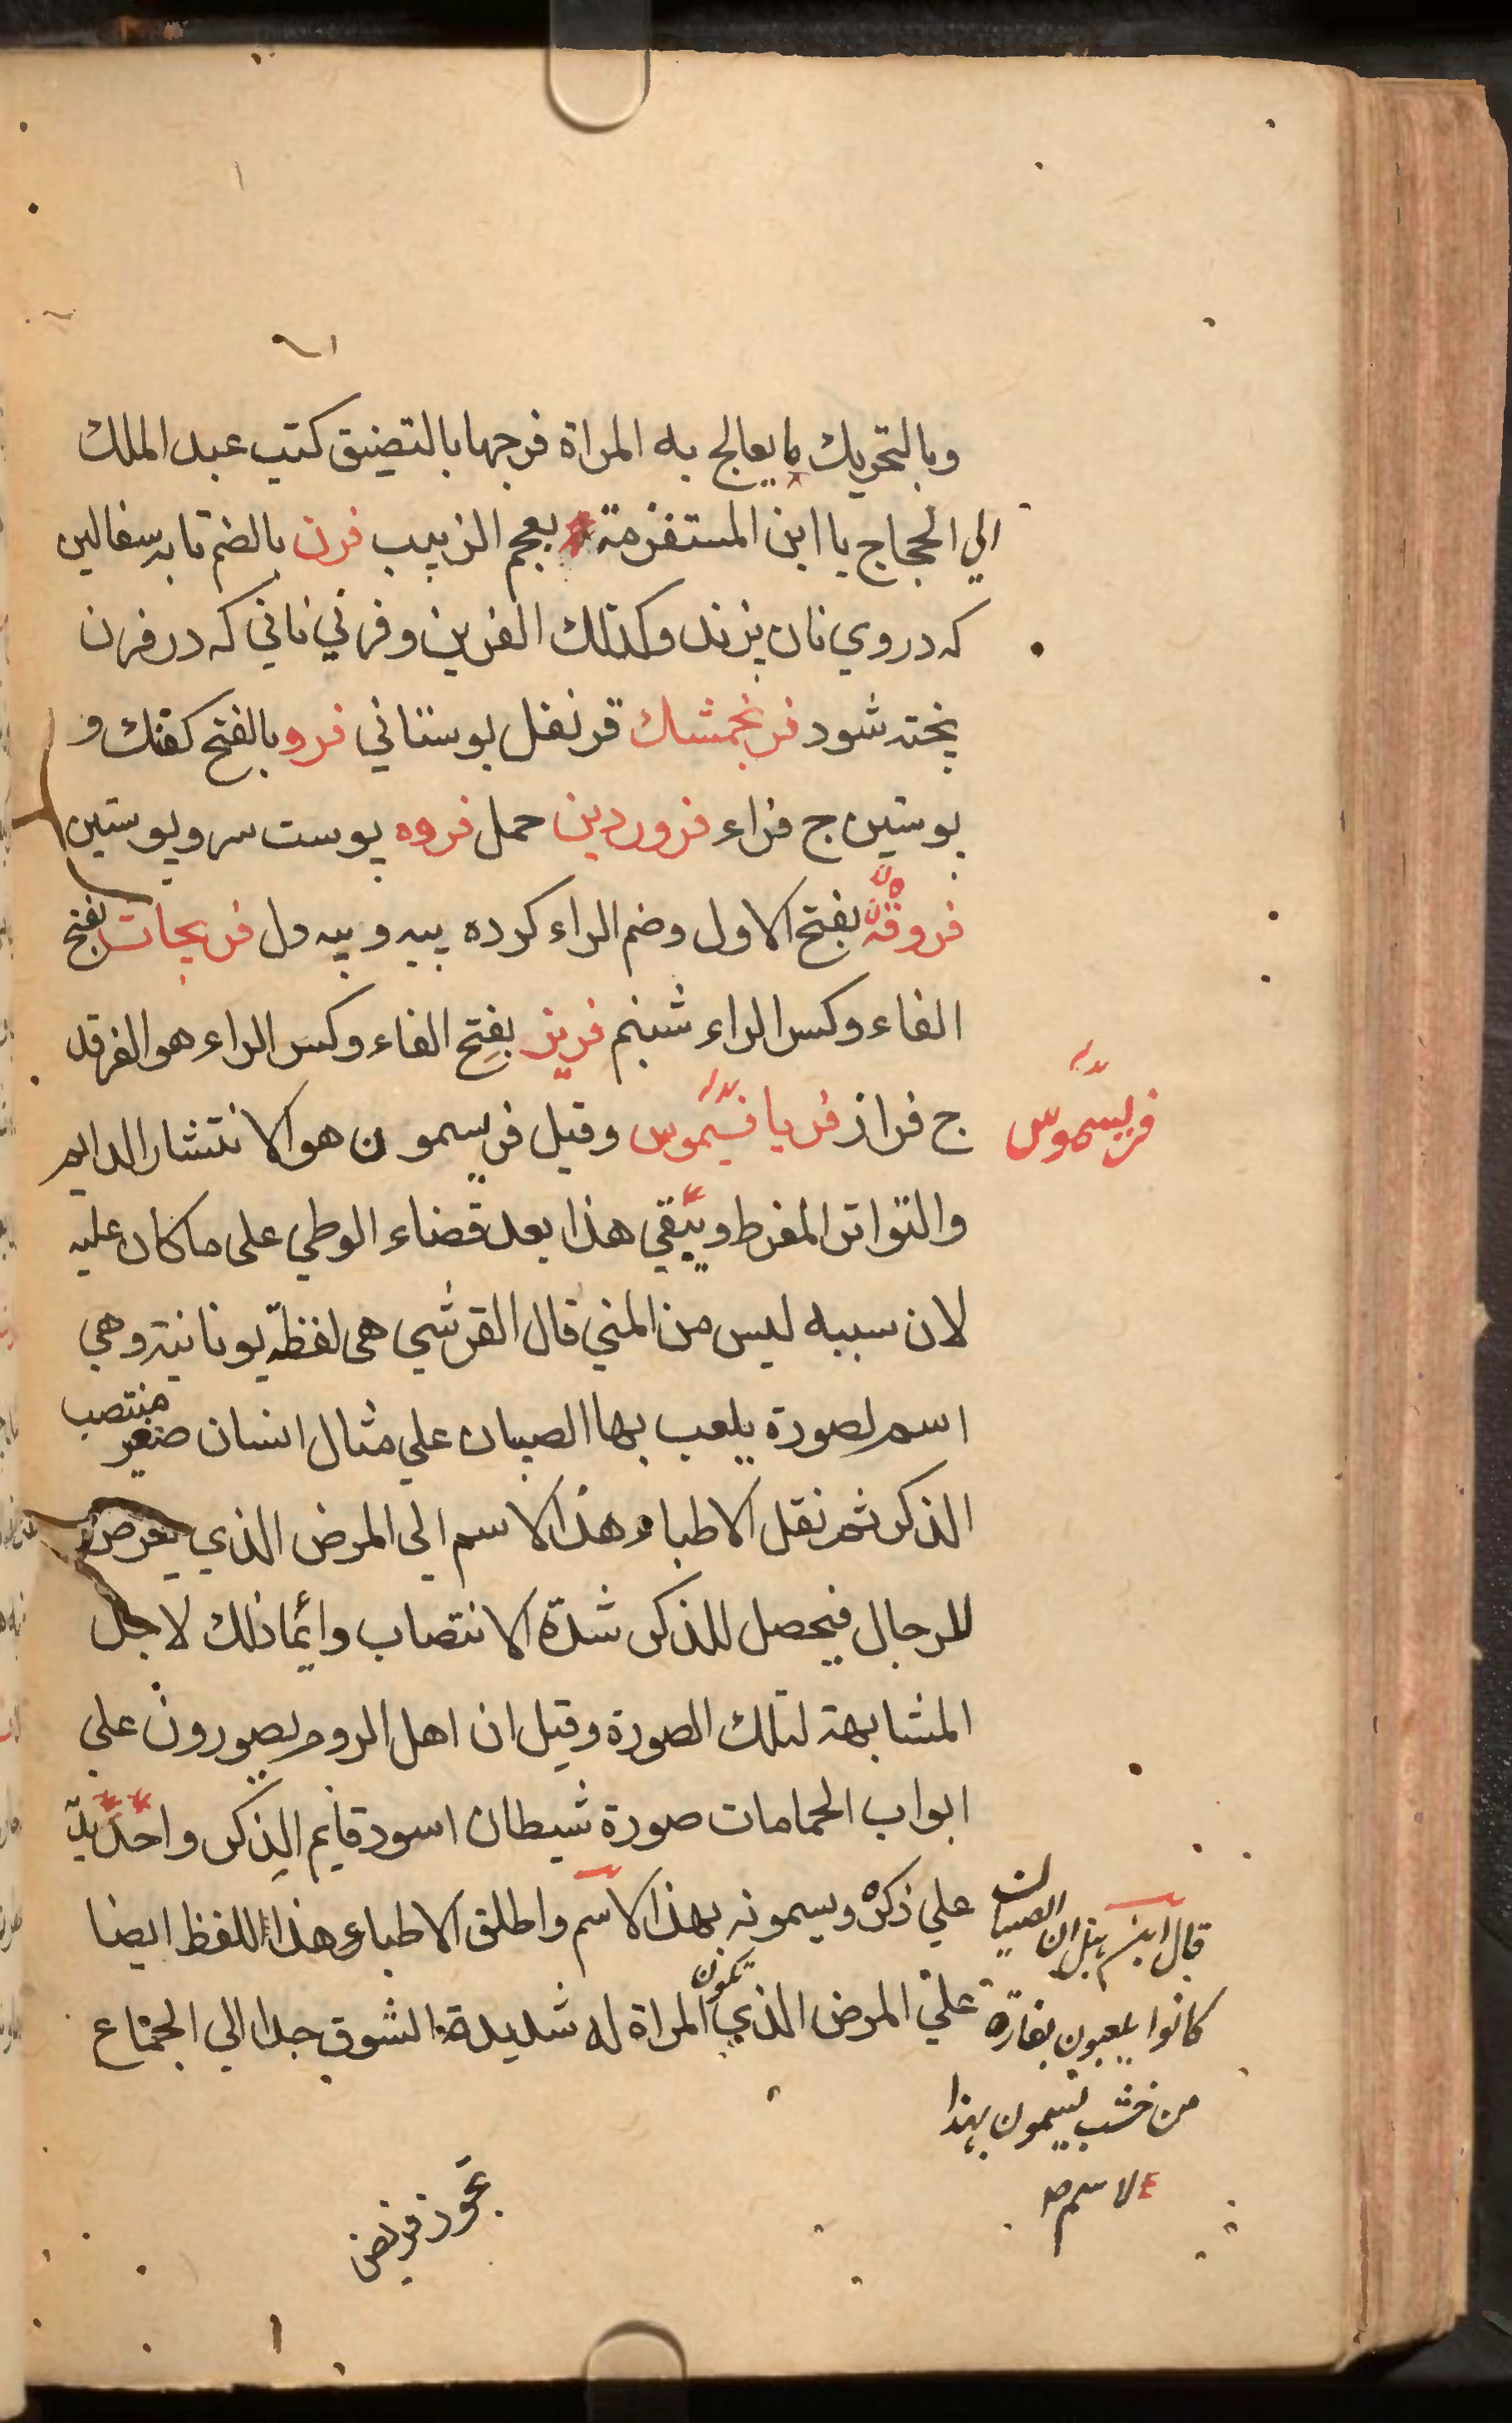 وبالتحريك ما يعالج به المراة فرجها بالتضيق كتب عبد الملك
الي الحجاج يا ابن المستفرمة بعجم الزبيب فرن بالضم تابه سفالين
كه در وي نان پزند وكذلك الفرين وفرني ناني كه در فرن
پخته شود فرنجمشك قرنفل بوستاني فرو بالفتح كفتك و
بوستين ج فراء فروردين حمل فروه پوست سر و پوستين
فروقة بفتح الاول وضم الراء كرده پيه و پيه دل فريجات بفتح
الفاء وكسر الراء شبنم فريز بفتح الفاء وكسر الراء هو الفرقد
ج فراز فريافيسموس وقيل فريسمون هو الانتشار الدايم
فريسموس
والتواتر المفرط ويبقي هذا بعد قضاء الوطي على ما كان عليه
لان سببه ليس من المني قال القرشي هي لفظة يونانية وهي
اسم لصورة يلعب بها الصبيان علي مثال انسان صغير منتصب
الذكر ثم نقل الاطباء هذا الاسم الى المرض الذي يعرض
للرجال فيحصل للذكر شدة الانتصاب وانما ذلك لاجل
المشابهة لتلك الصورة وقيل ان اهل الروم يصورون علي
ابواب الحمامات صورة شيطان اسود قايم الذكر واحدي يديه
علي ذكره ويسمونه بهذا الاسم واطلق الاطباء هذا اللفظ ايضا
علي المرض الذي يكون المراة له شديدة الشوق جدا الي الجماع
قال ابن هبل ان الصبيان
كانوا يلعبون بفارة
من خشب يسمون بهذا
الاسم
عجوز فريض